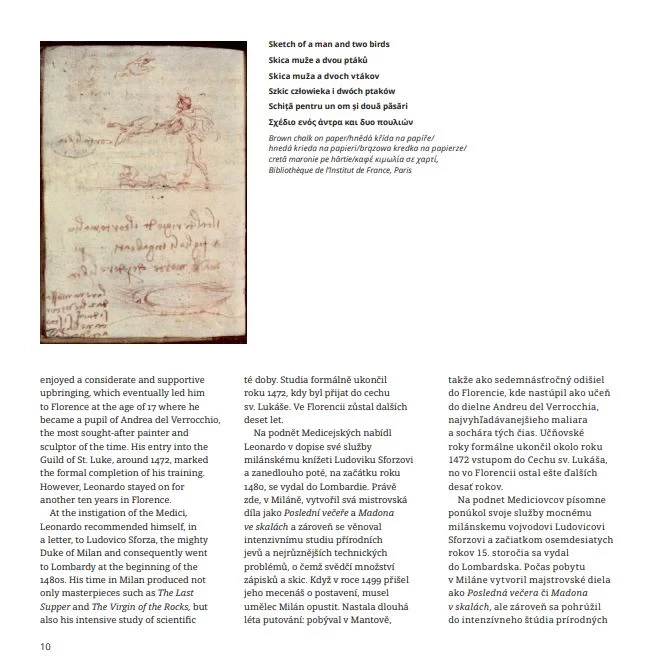 Sketch of a man and two birds
Skica muže a dvou ptáků
Skica muža a dvoch vtákov
Szkic człowieka i dwóch ptaków
Schiță pentru un om și două păsări
Σχέδιο ενός άντρα και δυο πουλιών
Brown chalk on paper/hnědá křída na papíře/
hnedá krieda na papieri/brązowa kredka na papierze/
cretă maronie pe hârtie/καφέ κιμωλία σε χαρτί,
Bibliothèque de l'Institut de France, Paris
enjoyed a considerate and supportive
upbringing, which eventually led him
to Florence at the age of 17 where he
became a pupil of Andrea del Verrocchio,
the most sought-after painter and
sculptor of the time. His entry into the
Guild of St. Luke, around 1472, marked
the formal completion of his training.
However, Leonardo stayed on for
another ten years in Florence.
At the instigation of the Medici,
Leonardo recommended himself, in
a letter, to Ludovico Sforza, the mighty
Duke of Milan and consequently went
to Lombardy at the beginning of the
1480s. His time in Milan produced not
only masterpieces such as The Last
Supper and The Virgin of the Rocks, but
also his intensive study of scientific
té doby. Studia formálně ukončil
roku 1472, kdy byl přijat do cechu
sv. Lukáše. Ve Florencii zůstal dalších
deset let.
Na podnět Medicejských nabídl
Leonardo v dopise své služby
milánskému knížeti Ludoviku Sforzovi
a zanedlouho poté, na začátku roku
1480, se vydal do Lombardie. Právě
zde, v Miláně, vytvořil svá mistrovská
díla jako Poslední večeře a Madona
ve skalách a zároveň se věnoval
intenzivnímu studiu přírodních
jevů a nejrůznějších technických
problémů, o čemž svědčí množství
zápisků a skic. Když v roce 1499 přišel
jeho mecenáš o postavení, musel
umělec Milán opustit. Nastala dlouhá
léta putování: pobýval v Mantově,
takže ako sedemnásťročný odišiel
do Florencie, kde nastúpil ako učeň
do dielne Andreu del Verrocchia,
najvyhľadávanejšieho maliara
a sochára tých čias. Učňovské
roky formálne ukončil okolo roku
1472 vstupom do Cechu sv. Lukáša,
no vo Florencii ostal ešte ďalších
desať rokov.
Na podnet Mediciovcov písomne
ponúkol svoje služby mocnému
milánskemu vojvodovi Ludovicovi
Sforzovi a začiatkom osemdesiatych
rokov 15. storočia sa vydal
do Lombardska. Počas pobytu
v Miláne vytvoril majstrovské diela
ako Posledná večera či Madona
v skalách, ale zároveň sa pohrúžil
do intenzívneho štúdia prírodných
10